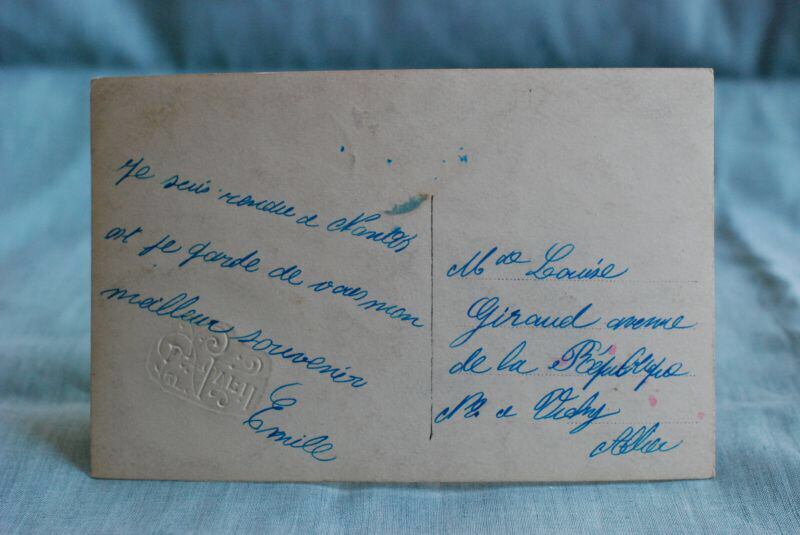 Je suis rendu a Nantes
est je garde de vous mon
meilleur souvenir
Emile
Mde Louise
Giraud avenue
de la République
a Vichy
Allier